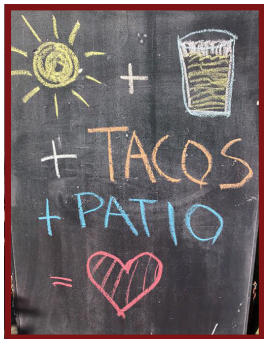 +
+ TACOS
+ PATIO
=